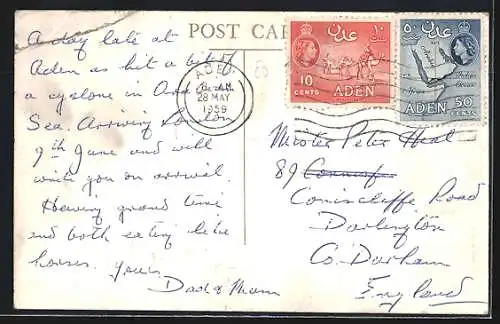 POST CAR
A day late at
Aden as hit a bit of
a cyclone in
Sea. Arriving London
9th June and will
write you on arrival.
Having grand time
and both eating like
horses. Yours
Dad & Mum
ADEN
28 MAY
1959
عدن
10
CENTS
ADEN
عدن
ADEN
50
CENTS
Master Peter Heat
89
Coniscliffe Road
Darlington
Co. Durham
England